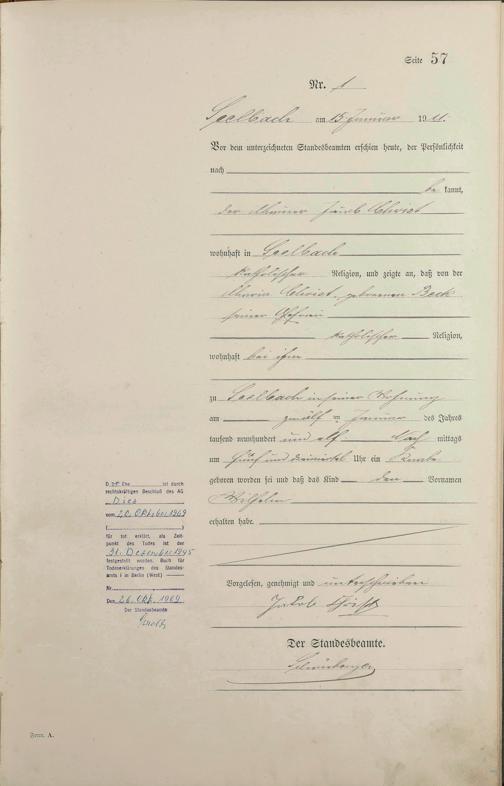 Seite 57
Nr. 1
Seelbach am 15 Januar 1911.
Vor dem unterzeichneten Standesbeamten erschien heute, der Persönlichkeit
nach
be kannt,
der Jakob Christ
wohnhaft in Seelbach
katholischer Religion, und zeigte an, daß von der
Maria Christ, geborenen Beck
seiner Ehefrau
katholischer Religion,
wohnhaft bei ihm
zu Seelbach in seiner Wohnung
am zwölf ten Januar des Jahres
tausend neunhundert und elf Nach mittags
um fünf und dreiviertel Uhr ein Knabe
geboren worden sei und daß das Kind den Vornamen
Wilhelm
erhalten habe.
Vorgelesen, genehmigt und unterschrieben
Jakob Christ
Der Standesbeamte.
D. Ehe ist durch
rechtskräftigen Beschluß des AG
Diez
vom 20. Oktober 1969
für tot erklärt, als Zeit-
punkt des Todes ist der
31. Dezember 1945
festgestellt worden. Buch für
Todeserklärungen des Standes-
amts I in Berlin (West)
Nr.
Den 26. Okt. 1969
Der Standesbeamte
Form. A.